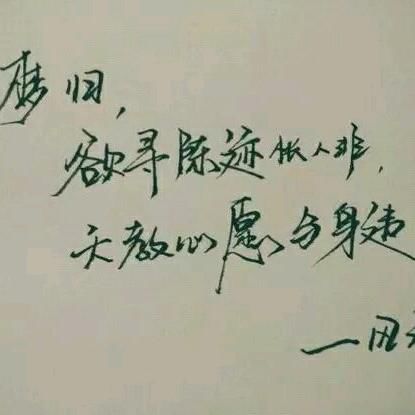 梦归，
欲寻陈迹怅人非，
天教心愿与身违